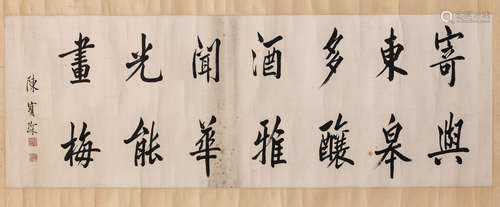 寄興
東皋
多釀
酒雅
聞華
光能
畫梅
陳寶琛